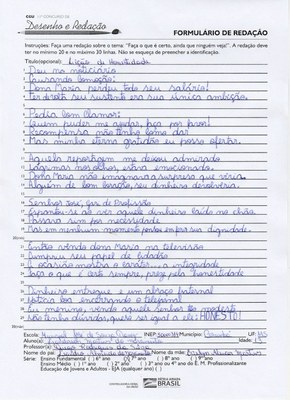 CGU 11º CONCURSO DE
Desenho e Redação
FORMULÁRIO DE REDAÇÃO
Instruções: Faça uma redação sobre o tema "Faça o que é certo, ainda que ninguém veja". A redação deve
ter no mínimo 20 e no máximo 30 linhas. Não se esqueça de preencher a identificação.
Título(opcional): Lição de Honestidade
Deu no noticiário
Causando comoção:
Dona Maria perdeu todo seu salário!
Ter direito seu sustento era sua única ambição.
Pedia com clamor:
Quem puder me ajudar, faça por favor!
Recompensa não tenho como dar
Mas minha eterna gratidão eu posso ofertar.
Aquela reportagem me deixou admirado
Lágrimas nos olhos, estava emocionado.
Dona Maria não imaginava a surpresa que viria.
Alguém de bom coração, seu dinheiro devolveria.
Senhor José, gari de Profissão
Espantou-se ao ver aquele dinheiro caído no chão.
Passava sim por necessidade
Mas em nenhum momento pensou em ferir sua dignidade.
Então vendo dona Maria na televisão
Cumpriu seu papel de cidadão
A ocasião mostra o caráter e a integridade
Faça o que é certo sempre, preze pela honestidade
Dinheiro entregue e um abraço fraternal
Notícia boa encerrando o telejornal
Eu menino, vendo aquele senhor tão modesto
Não tenho dúvidas, quero ser igual a ele: HONESTO!
Escola:
INEP
Município:
UF: MS
Aluno(a):
Idade: 13
Professor(a):
Nome do pai:
Nome da mãe:
Série: Ensino Fundamental ( ) 6º ano ( ) 7º ano ( ) 8º ano ( ) 9º ano
Ensino Médio ( ) 1º ano ( ) 2º ano ( ) 3º ano ( ) 4º ano do E. M. Profissionalizante
Educação de Jovens e Adultos - EJA (qualquer ciclo) ( )
BRASIL